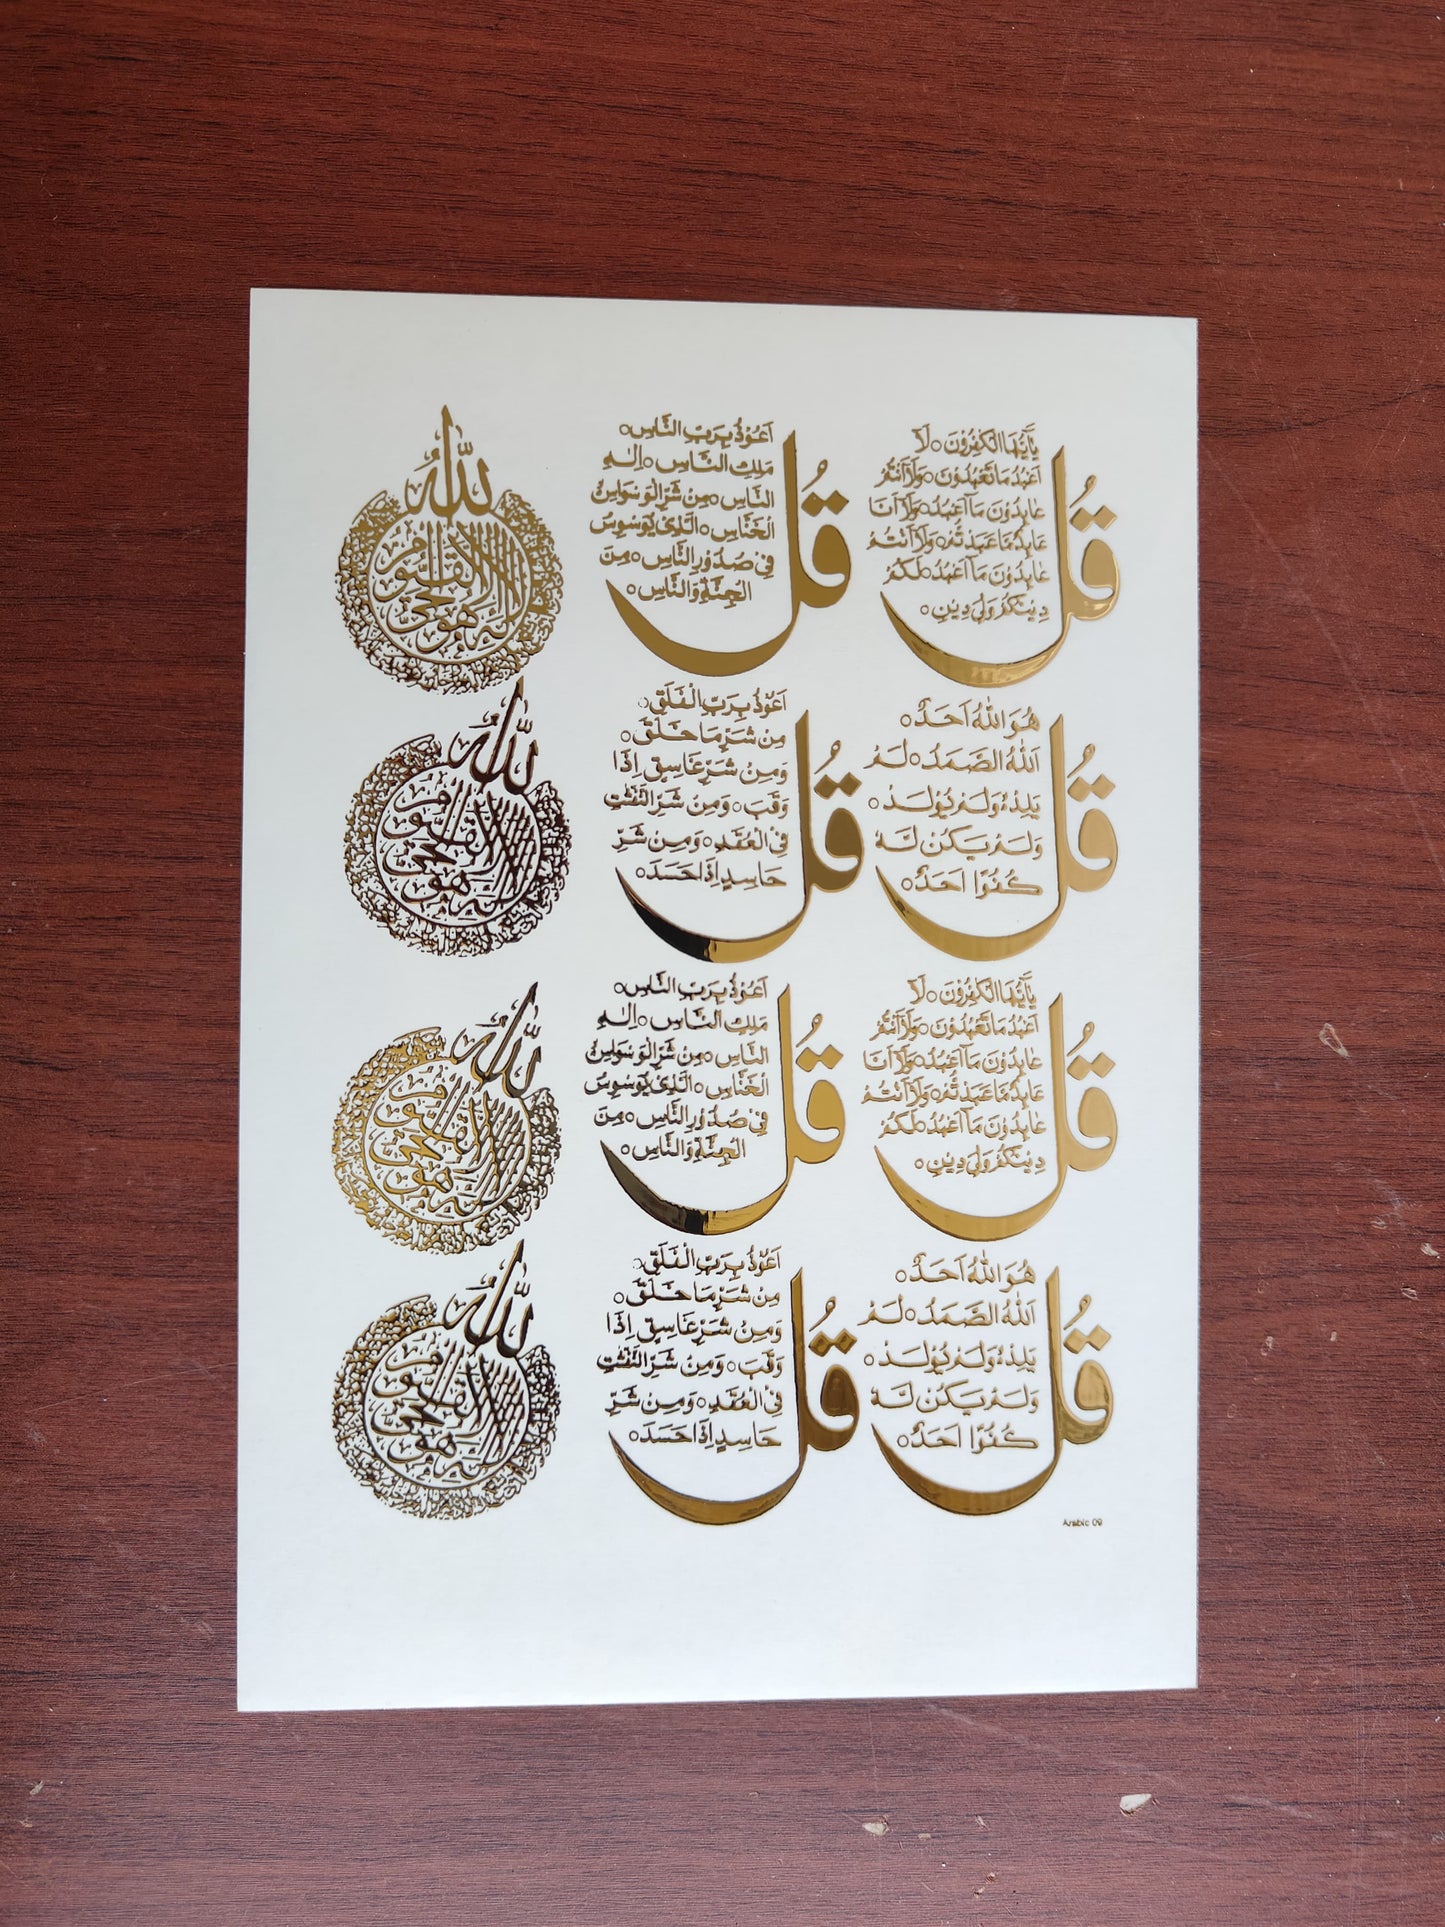 قُلْ
يٰٓاَيُّهَا الْكٰفِرُوْنَ ○ لَآ
اَعْبُدُ مَا تَعْبُدُوْنَ ○ وَلَآ اَنْتُمْ
عٰبِدُوْنَ مَآ اَعْبُدُ ○ وَلَآ اَنَا
عَابِدٌ مَّا عَبَدْتُّمْ ○ وَلَآ اَنْتُمْ
عٰبِدُوْنَ مَآ اَعْبُدُ ○ لَكُمْ
دِيْنُكُمْ وَلِيَ دِيْنِ ○
قُلْ
اَعُوْذُ بِرَبِّ النَّاسِ ○
مَلِكِ النَّاسِ ○ اِلٰهِ
النَّاسِ ○ مِنْ شَرِّ الْوَسْوَاسِ
الْخَنَّاسِ ○ الَّذِيْ يُوَسْوِسُ
فِيْ صُدُوْرِ النَّاسِ ○ مِنَ
الْجِنَّةِ وَالنَّاسِ ○
اللّٰهُ
لَآ اِلٰهَ اِلَّا هُوَ الْحَيُّ الْقَيُّوْمُ
قُلْ
هُوَ اللّٰهُ اَحَدٌ ○
اَللّٰهُ الصَّمَدُ ○ لَمْ
يَلِدْ ○ وَلَمْ يُوْلَدْ ○
وَلَمْ يَكُنْ لَّهٗ
كُفُوًا اَحَدٌ ○
قُلْ
اَعُوْذُ بِرَبِّ الْفَلَقِ ○
مِنْ شَرِّ مَا خَلَقَ ○
وَمِنْ شَرِّ غَاسِقٍ اِذَا
وَقَبَ ○ وَمِنْ شَرِّ النَّفّٰثٰتِ
فِي الْعُقَدِ ○ وَمِنْ شَرِّ
حَاسِدٍ اِذَا حَسَدَ ○
اللّٰهُ
لَآ اِلٰهَ اِلَّا هُوَ الْحَيُّ الْقَيُّوْمُ
قُلْ
يٰٓاَيُّهَا الْكٰفِرُوْنَ ○ لَآ
اَعْبُدُ مَا تَعْبُدُوْنَ ○ وَلَآ اَنْتُمْ
عٰبِدُوْنَ مَآ اَعْبُدُ ○ وَلَآ اَنَا
عَابِدٌ مَّا عَبَدْتُّمْ ○ وَلَآ اَنْتُمْ
عٰبِدُوْنَ مَآ اَعْبُدُ ○ لَكُمْ
دِيْنُكُمْ وَلِيَ دِيْنِ ○
قُلْ
اَعُوْذُ بِرَبِّ النَّاسِ ○
مَلِكِ النَّاسِ ○ اِلٰهِ
النَّاسِ ○ مِنْ شَرِّ الْوَسْوَاسِ
الْخَنَّاسِ ○ الَّذِيْ يُوَسْوِسُ
فِيْ صُدُوْرِ النَّاسِ ○ مِنَ
الْجِنَّةِ وَالنَّاسِ ○
اللّٰهُ
لَآ اِلٰهَ اِلَّا هُوَ الْحَيُّ الْقَيُّوْمُ
قُلْ
هُوَ اللّٰهُ اَحَدٌ ○
اَللّٰهُ الصَّمَدُ ○ لَمْ
يَلِدْ ○ وَلَمْ يُوْلَدْ ○
وَلَمْ يَكُنْ لَّهٗ
كُفُوًا اَحَدٌ ○
قُلْ
اَعُوْذُ بِرَبِّ الْفَلَقِ ○
مِنْ شَرِّ مَا خَلَقَ ○
وَمِنْ شَرِّ غَاسِقٍ اِذَا
وَقَبَ ○ وَمِنْ شَرِّ النَّفّٰثٰتِ
فِي الْعُقَدِ ○ وَمِنْ شَرِّ
حَاسِدٍ اِذَا حَسَدَ ○
اللّٰهُ
لَآ اِلٰهَ اِلَّا هُوَ الْحَيُّ الْقَيُّوْمُ
Arabic 09